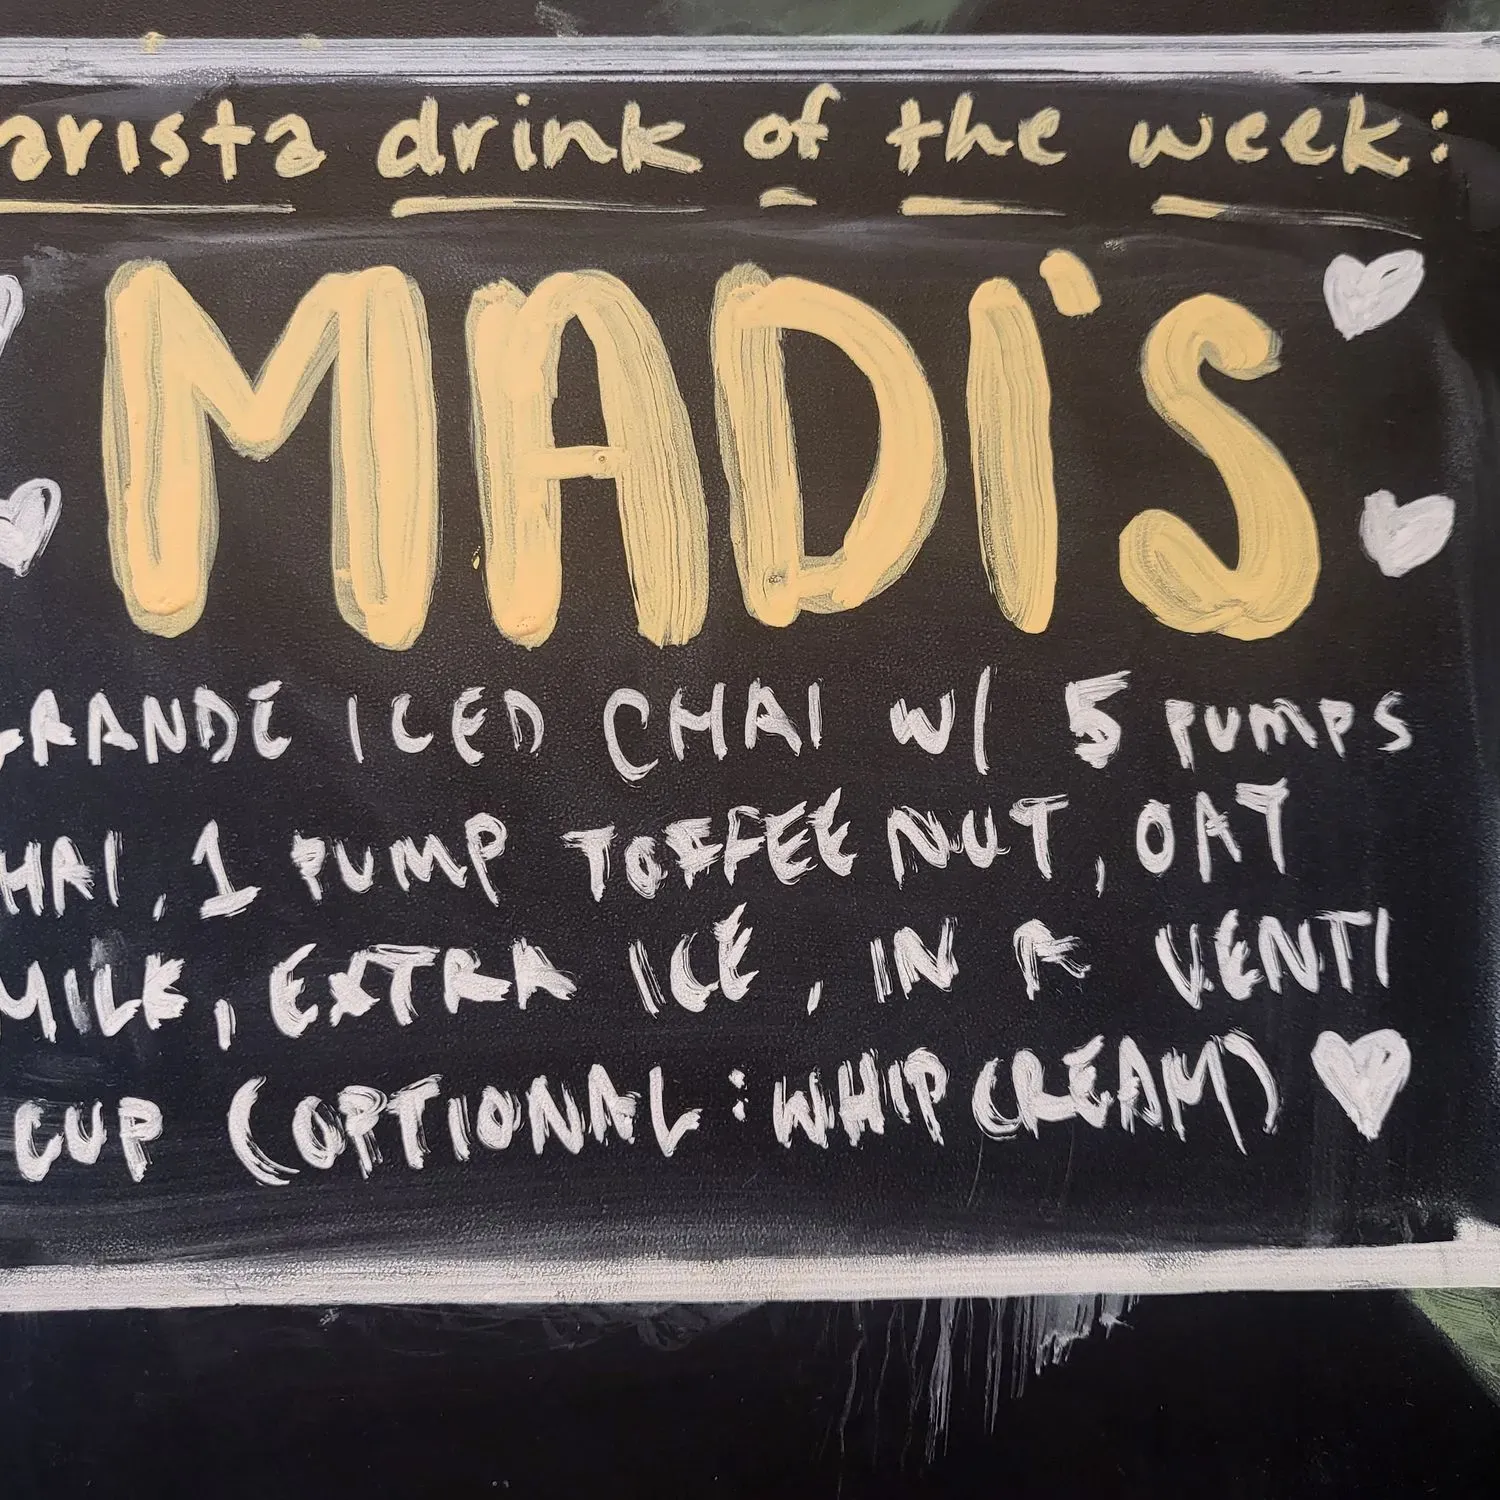 arista drink of the week:
MADI'S
GRANDE ICED CHAI W/ 5 PUMPS
HAI, 1 PUMP TOFFEE NUT, OAT
MILK, EXTRA ICE, IN A VENTI
CUP (OPTIONAL: WHIP CREAM)